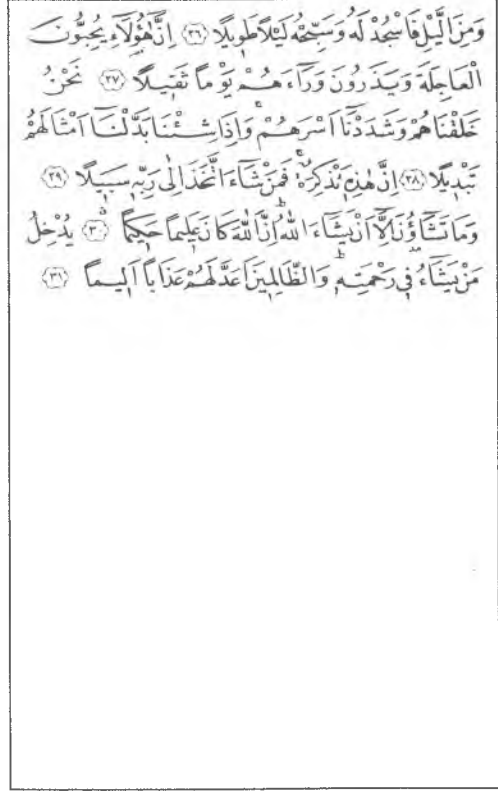 وَمِنَ الَّيْلِ فَاسْجُدْ لَهُ وَسَبِّحْهُ لَيْلًا طَوِيلًا ﴿٢٦﴾ اِنَّ هٰٓؤُ۬لَٓاءِ يُحِبُّونَ
الْعَاجِلَةَ وَيَذَرُونَ وَرَٓاءَهُمْ يَوْمًا ثَقِيلًا ﴿٢٧﴾ نَحْنُ
خَلَقْنَاهُمْ وَشَدَدْنَٓا اَسْرَهُمْۚ وَاِذَا شِئْنَا بَدَّلْنَٓا اَمْثَالَهُمْ
تَبْدِيلًا ﴿٢٨﴾ اِنَّ هٰذِهِ تَذْكِرَةٌۚ فَمَنْ شَٓاءَ اتَّخَذَ اِلٰى رَبِّهِ سَبِيلًا ﴿٢٩﴾
وَمَا تَشَٓاؤُ۫نَ اِلَّٓا اَنْ يَشَٓاءَ اللّٰهُۜ اِنَّ اللّٰهَ كَانَ عَلِيمًا حَكِيمًاۗ ﴿٣٠﴾ يُدْخِلُ
مَنْ يَشَٓاءُ فِي رَحْمَتِهِۜ وَالظَّالِمِينَ اَعَدَّ لَهُمْ عَذَابًا اَلِيمًا ﴿٣١﴾